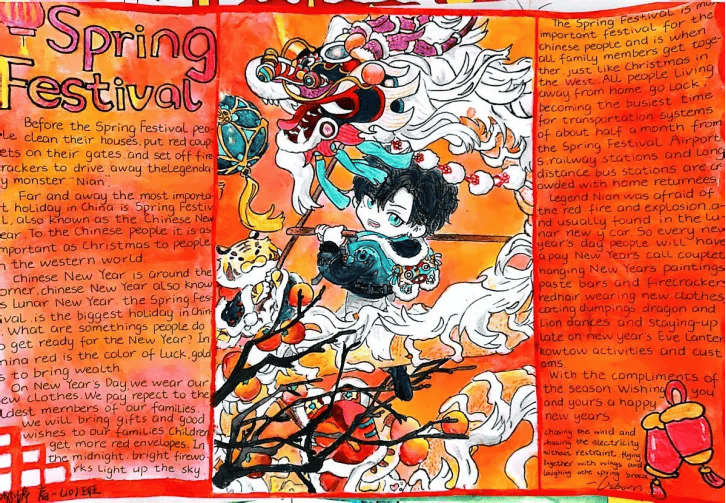 Spring
Festival
Before the Spring Festival peo-
le clean their houses, put red coup
ets on their gates. and set off fire
rackers to drive away the legenda
y monster "Nian".
Far and away the most importa
t holiday in China is Spring Festiv
l, also known as the Chinese New
ear. To the Chinese people it is as
mportant as Christmas to people
the western world.
Chinese New Year is around the
orner. chinese New Year also know
s Lunar New Year. the Spring Fes
ival. is the biggest holiday in chin
. What are somethings people do
o get ready for the New Year? In
hina red is the color of luck, gold
s to bring wealth.
On New Year's Day, we wear our
ew clothes. We pay repect to the
ldest members of our families.
We will bring gifts and good
wishes to our families. Children
get more red envelopes. In
the midnight. bright firewo-
rks light up the sky
The Spring Festival is
important festival for the
chinese people and is when
all family members get toge-
ther just like Christmas in
the West. All people living
away from home go back.
becoming the busiest time
for transportation systems
of about half a month from
the Spring Festival. Airport
s, railway stations and long
distance bus stations are cr
owded with home returnees.
Legend Nian was afraid of
the red fire and explosion. a
nd usually found in the lu
nar new year. So every new
year's day people will have
a pay New Years call couplet
hanging New Years painting
paste bars and firecracker
redhair wearing new clothes
eating dumpings dragon and
lion dances and staying-up
late on new year's Eve Lanter
kowtow activities and cust
oms.
With the compliments of
the season. Wishing you
and yours a happy
new years
chasing the wind and
chasing the electricity
without restraint. flying
together with wings and
laughing at the spring breeze